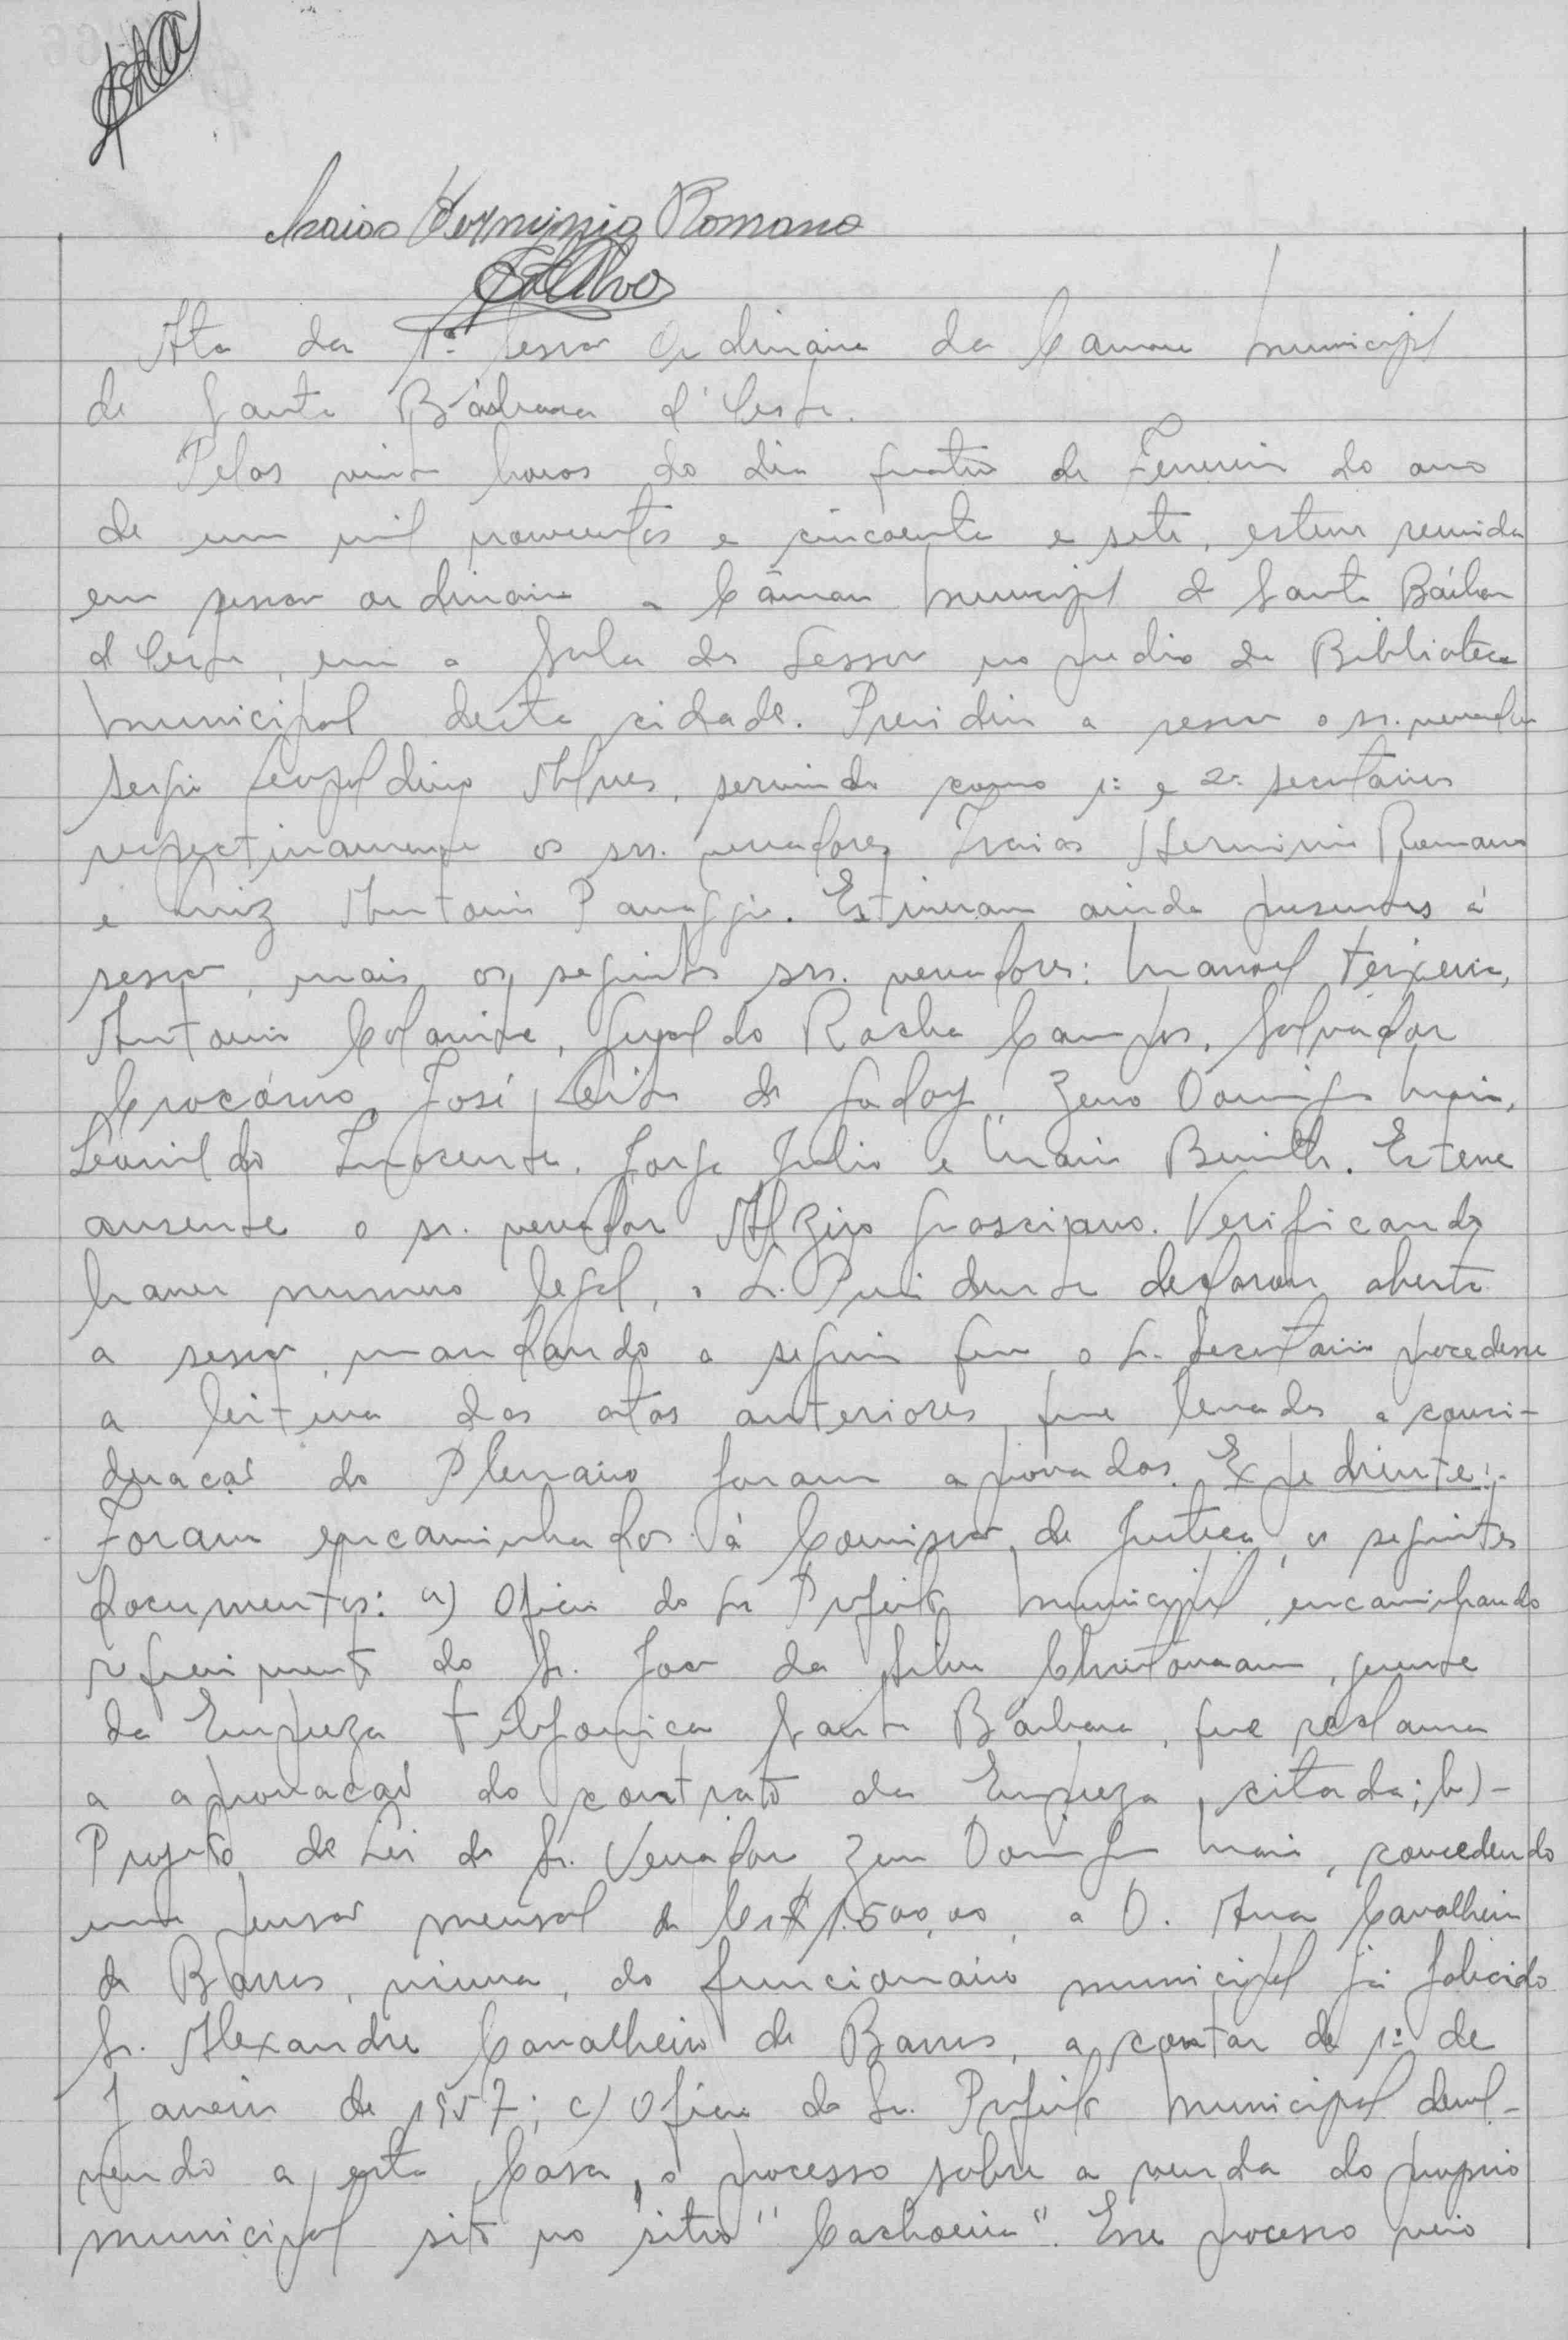 Isaias Herminio Romano
Ata da 1ª Sessão Ordinaria da Camara Municipal
de Santa Bárbara d'Oeste.
Pelas vinte horas do dia quatro de Fevereiro do ano
de um mil novecentos e cincoenta e sete, esteve reunida
em sessão ordinaria a Câmara Municipal de Santa Bárbara
d'Oeste, em a Sala das Sessões no predio da Biblioteca
Municipal desta cidade. Presidiu a sessão o sr. vereador
Sergio Leopoldino Alves, servindo como 1º e 2º secretarios
respectivamente os srs. vereadores Isaias Herminio Romano
e Luiz Antonio Panaggio. Estiveram ainda presentes á
sessão, mais os seguintes srs. vereadores: Manoel Teixeira,
Antonio , Geraldo Rocha Campos, Salvador
José Leite de Godoy, Zeno Domingues Maia,
Leonildo Inocente, Jorge Julio e Mario . Esteve
ausente o sr. vereador Alziro Grosciano. Verificando
haver numero legal, o Sr. Presidente declarou aberta
a sessão, mandando a seguir que o Sr. Secretario procedesse
a leitura das atas anteriores, que levadas a consi-
deração do Plenario foram aprovadas. Expediente:-
Foram encaminhados á Comissão de Justiça, os seguintes
documentos: a) Oficio do Sr Prefeito Municipal, encaminhando
requerimento do Sr. João da Silva , gerente
da Empreza Telefonica Santa Bárbara, que reclama
a aprovação do contrato da Empreza citada; b)-
Projeto de Lei do Sr. Vereador Zeno Domingues Maia, concedendo
uma pensão mensal de Cr$ 1.500,00, a D. Ana Cavalheiro
de Barros, viuva, do funcionario municipal já falecido
Sr. Alexandre Cavalheiro de Barros, a contar de 1º de
Janeiro de 1957; c) Oficio do Sr. Prefeito Municipal devol-
vendo a esta Casa, o processo sobre a venda do proprio
municipal sito no sitio "Cachoeira". Esse processo veio